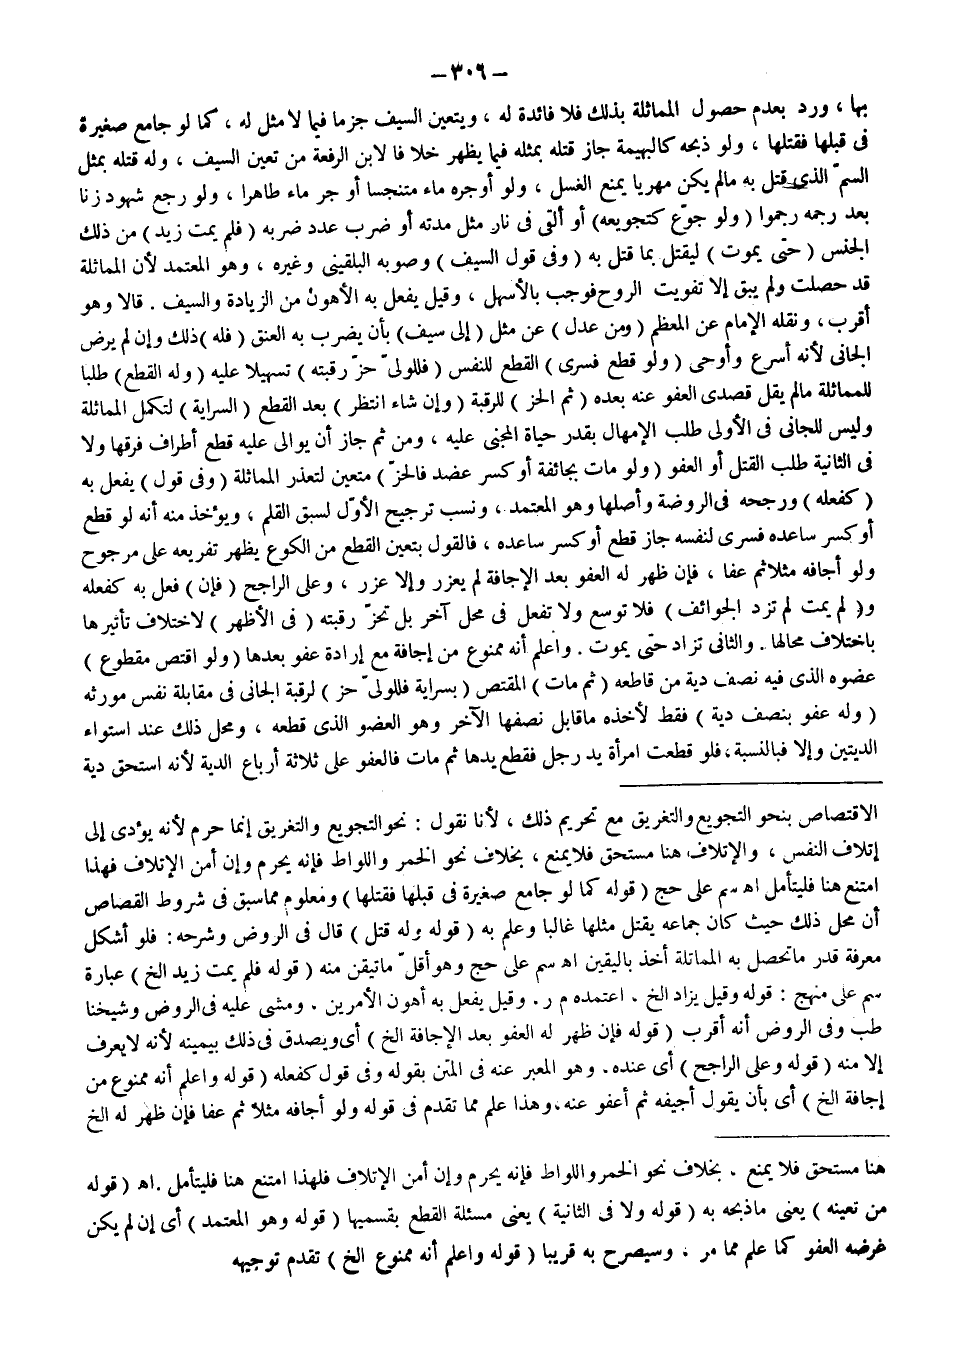 – ٣٠٦ –
بها ، ورد بعدم حصول المماثلة بذلك فلا فائدة له ، ويتعين السيف جزما فيما لا مثل له ، كما لو جامع صغيرة
فى قبلها فقتلها ، ولو ذبحه كالبهيمة جاز قتله بمثله فيما يظهر خلا فا لابن الرفعة من تعين السيف ، وله قتله بمثل
السمّ الذى قتل به مالم يكن مهريا يمنع الغسل ، ولو أوجره ماء متنجسا أوجر ماء طاهرا ، ولو رجع شهود زنا
بعد رجمه رجموا ( ولو جوّع كتجويعه) أو ألقى فى نار مثل مدته أو ضرب عدد ضربه ( فلم يمت زيد ) من ذلك
الجنس ( حتى يموت ) ليقتل بما قتل به ( وفى قول السيف ) وصوبه البلقينى وغيره ، وهو المعتمد لأن المماثلة
قد حصلت ولم يبق إلا تفويت الروح فوجب بالأسهل ، وقيل يفعل به الأهون من الزيادة والسيف . قالا وهو
أقرب ، ونقله الإمام عن المعظم ( ومن عدل ) عن مثل ( إلى سيف) بأن يضرب به العنق ( فله ) ذلك وإن لم يرض
الجانى لأنه أسرع وأوحى ( ولو قطع فسرى ) القطع للنفس ( فللولىّ حزّ رقبته ) تسهيلا عليه ( وله القطع) طلبا
للمماثلة مالم يقل قصدى العفو عنه بعده ( ثم الحز ) للرقبة ( وإن شاء انتظر ) بعد القطع ( السراية ) لتكمل المماثلة
وليس للجانى فى الأولى طلب الإمهال بقدر حياة المجنى عليه ، ومن ثم جاز أن يوالى عليه قطع أطراف فرقها ولا
فى الثانية طلب القتل أو العفو ( ولو مات بجائفة أو كسر عضد فالحزّ ) متعين لتعذر المماثلة ( وفى قول ) يفعل به
( كفعله ) ورجحه فى الروضة وأصلها وهو المعتمد ، ونسب ترجيح الأوّل لسبق القلم ، ويؤخذ منه أنه لو قطع
أو كسر ساعده فسرى لنفسه جاز قطع أو كسر ساعده ، فالقول بتعين القطع من الكوع يظهر تفريعه على مرجوح
ولو أجافه مثلا ثم عفا ، فإن ظهر له العفو بعد الإجافة لم يعزر وإلا عزر ، وعلى الراجح ( فإن ) فعل به كفعله
و( لم يمت لم تزد الجوائف ) فلا توسع ولا تفعل فى محل آخر بل تحزّ رقبته ( فى الأظهر ) لاختلاف تأثيرها
باختلاف محالها . والثانى تزاد حتى يموت . واعلم أنه ممنوع من إجافة مع إرادة عفو بعدها ( ولو اقتص مقطوع )
عضوه الذى فيه نصف دية من قاطعه ( ثم مات ) المقتص ( بسراية فللولىّ حز ) لرقبة الجانى فى مقابلة نفس مورثه
( وله عفو بنصف دية ) فقط لأخذه ماقابل نصفها الآخر وهو العضو الذى قطعه ، ومحل ذلك عند استواء
الديتين وإلا فبالنسبة ، فلو قطعت امرأة يد رجل فقطع يدها ثم مات فالعفو على ثلاثة أرباع الدية لأنه استحق دية
الاقتصاص بنحو التجويع والتغريق مع تحريم ذلك ، لأنا نقول : نحو التجويع والتغريق إنما حرم لأنه يؤدى إلى
إتلاف النفس ، والإتلاف هنا مستحق فلايمنع ، بخلاف نحو الخمر واللواط فإنه يحرم وإن أمن الإتلاف فهذا
امتنع هنا فليتأمل اه سم على حج ( قوله كما لو جامع صغيرة فى قبلها فقتلها ) ومعلوم مماسبق فى شروط القصاص
أن محل ذلك حيث كان جماعه يقتل مثلها غالبا وعلم به ( قوله وله قتل ) قال فى الروض وشرحه : فلو أشكل
معرفة قدر ماتحصل به المماثلة أخذ باليقين اه سم على حج وهو أقلّ ماتيقن منه ( قوله فلم يمت زيد الخ ) عبارة
سم على منهج : قوله وقيل يزاد الخ . اعتمده م ر . وقيل يفعل به أهون الأمرين . ومشى عليه فى الروض وشيخنا
طب وفى الروض أنه أقرب ( قوله فإن ظهر له العفو بعد الإجافة الخ ) أى ويصدق فى ذلك بيمينه لأنه لايعرف
إلا منه ( قوله وعلى الراجح ) أى عنده . وهو المعبر عنه فى المتن بقوله وفى قول كفعله ( قوله واعلم أنه ممنوع من
إجافة الخ ) أى بأن يقول أجيفه ثم أعفو عنه ، وهذا علم مما تقدم فى قوله ولو أجافه مثلا ثم عفا فإن ظهر له الخ
هنا مستحق فلا يمنع . بخلاف نحو الخمر واللواط فإنه يحرم وإن أمن الإتلاف فلهذا امتنع هنا فليتأمل . اه ( قوله
من تعينه ) يعنى ماذبحه به ( قوله ولا فى الثانية ) يعنى مسئلة القطع بقسميها ( قوله وهو المعتمد ) أى إن لم يكن
غرضه العفو كما علم مما مر ، وسيصرح به قريبا ( قوله واعلم أنه ممنوع الخ ) تقدم توجيهه